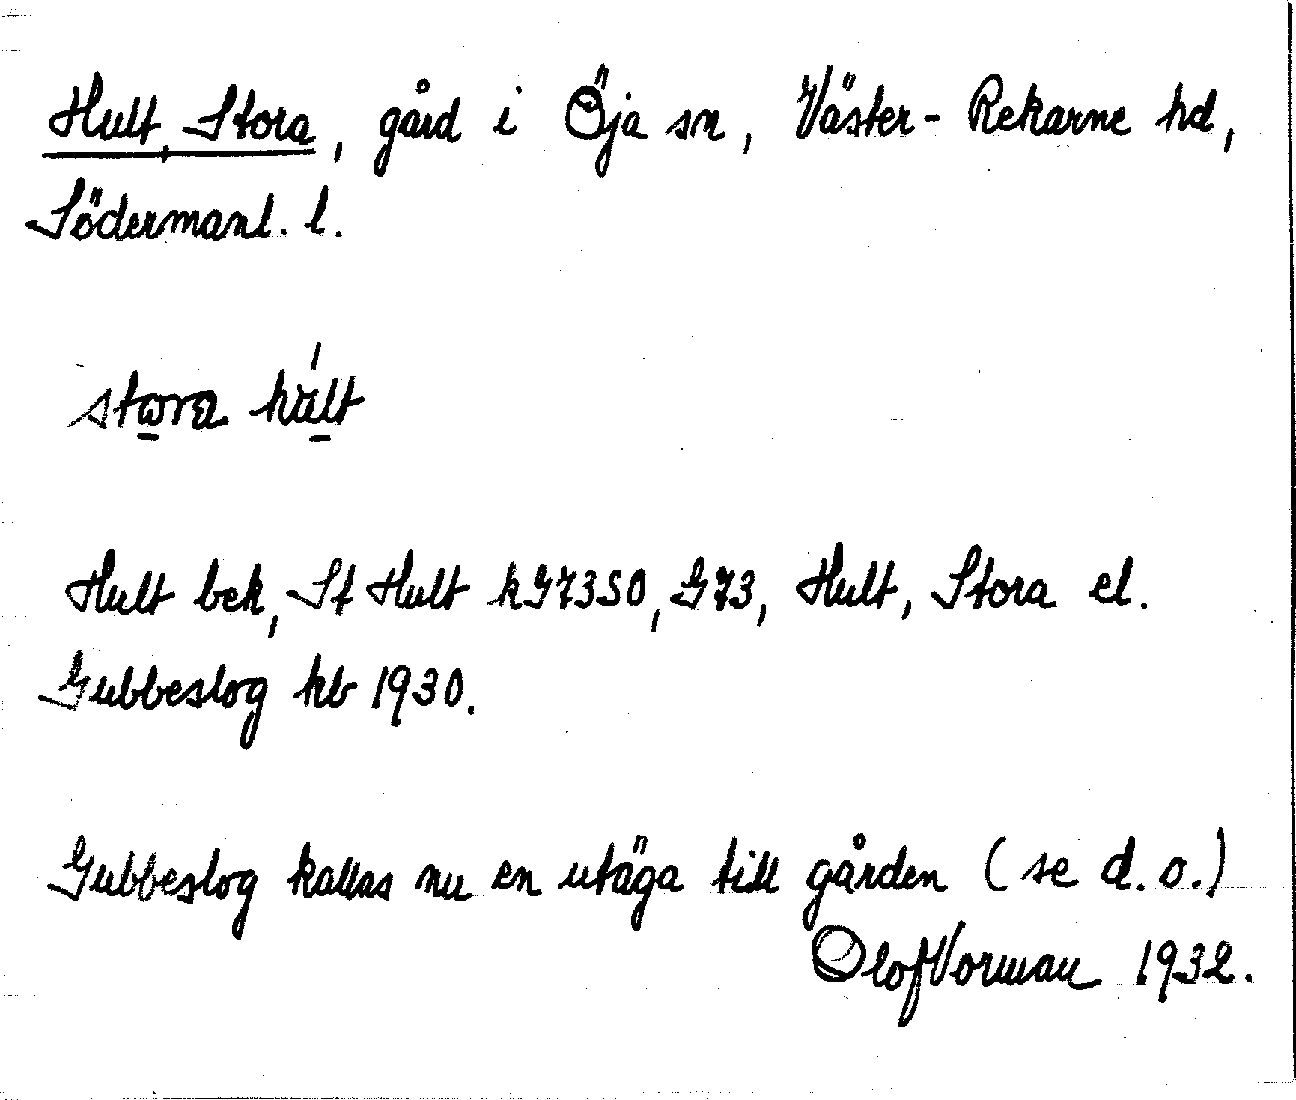 Hult, Stora, gård i Öja sn, Väster-Rekarne hd,
Södermanl. l.
stora hult
Hult bek, St Hult k G7350, G73, Hult, Stora el.
Gubbeslog kb 1930.
Gubbeslog kallas nu en utäga till gården (se d.o.)
Olof Vorman 1932.